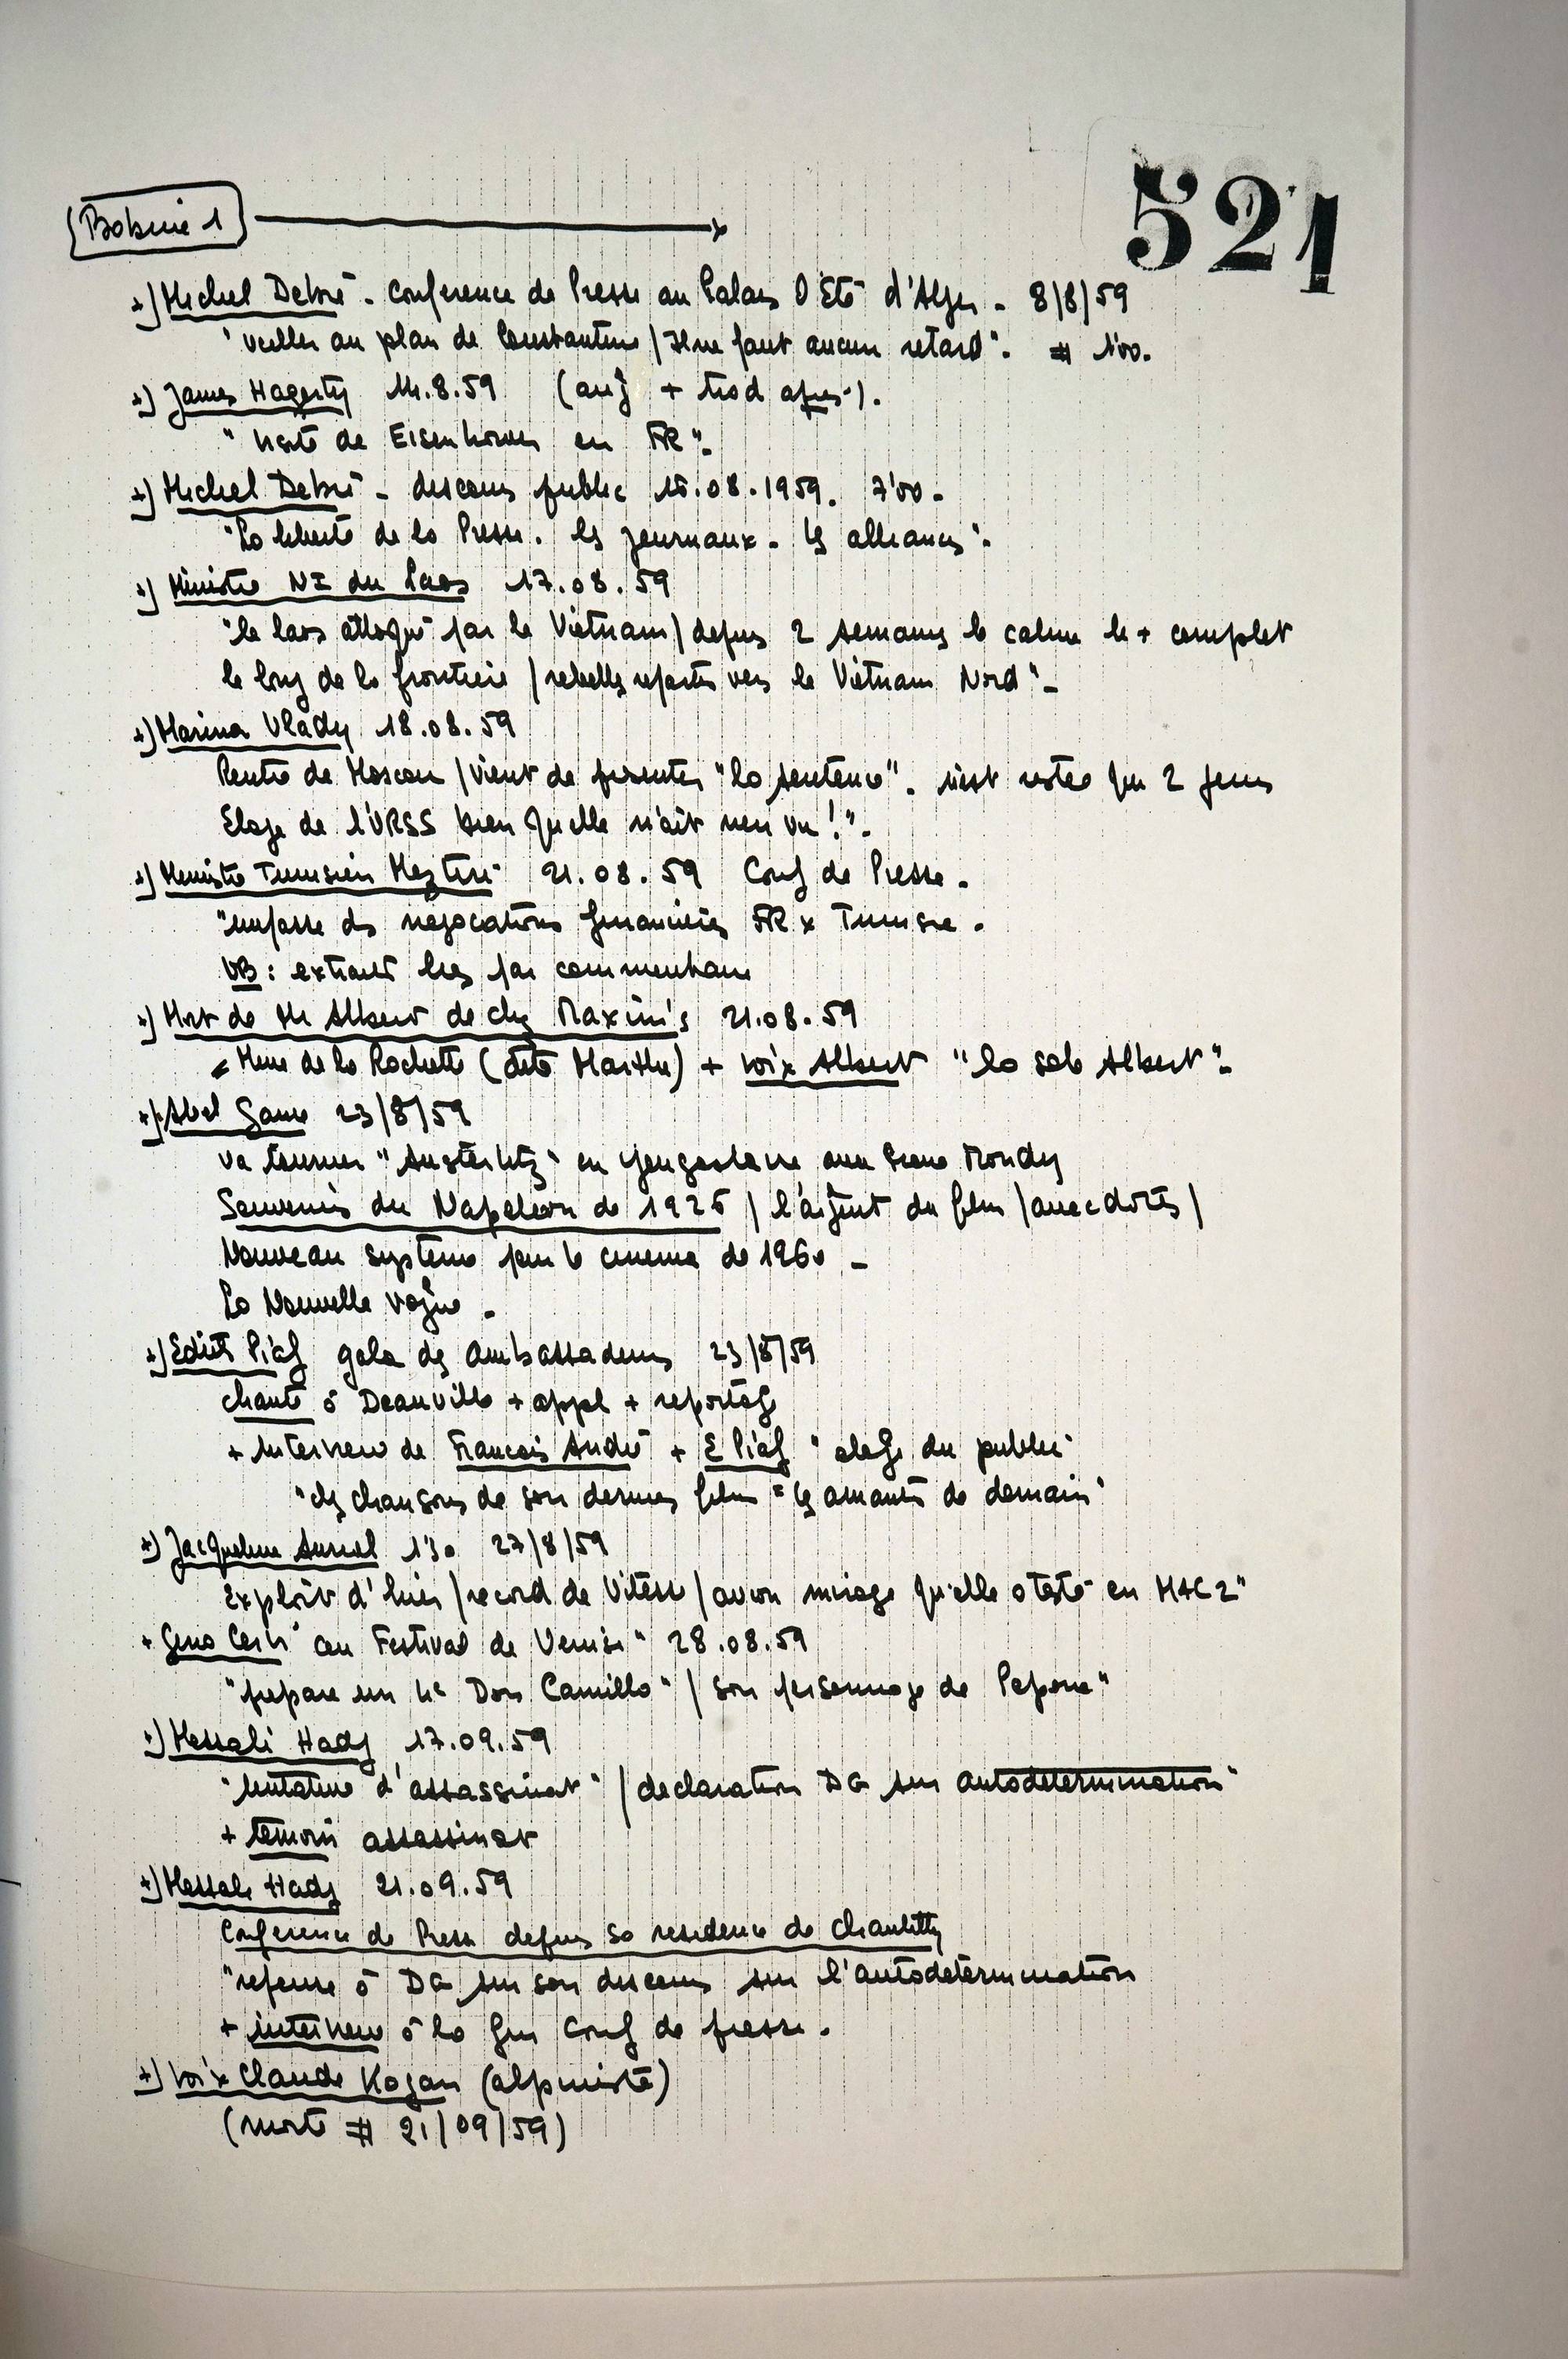 521
Bobine 1
+) Michel Debré - Conference de Presse au Palais D'Eté d'Alger - 8/8/59
"veiller au plan de Constantine / Il ne faut aucun retard". # 1'00.
+) James Hagerty 14.8.59 (ang + trad apres).
"Visite de Eisenhower en FR".
+) Michel Debré - discours public 15.08.1959. 7'00 -
"La liberté de la Presse. les journaux - les alliances".
+) Ministre NI du Laos 17.08.59
"le laos attaqué par le Vietnam / depuis 2 semaines le calme le + complet
le long de la frontiere / rebelles repartis vers le Vietnam Nord" -
+) Marina Vlady 18.08.59
Rentre de Moscou / vient de presenter "la sentence". n'est restée que 2 jours
Eloge de l'URSS bien qu'elle n'ait rien vu !" -
+) Ministre Tunisien 21.08.59 Conf de Presse -
"impasse des negociations financieres FR x Tunisie -
NB : extraits lus par commentaire
+) Mort de Mr Albert de chez Maxim's 21.08.59
= Mme de la Rochette (dite Marthe) + voix Albert "la sole Albert".
+) Abel Gance 23/8/59
va tourner "Austerlitz" en Yougoslavie avec Pierre Mondy
Souvenirs du Napoleon de 1926 / l'argent du film / anecdotes /
Nouveau systeme pour le cinema de 1960 -
La Nouvelle vague -
+) Edith Piaf gala des Ambassadeurs 23/8/59
chante à Deauville + appl + reportage
+ Interview de Francois André + E Piaf "eloge du public"
"les chansons de son dernier film = les amants de demain"
+) Jacqueline Auriol 1'30 27/8/59
Exploit d'hier / record de Vitesse / avion mirage qu'elle a testé en MAC 2"
+ Gino Cervi "au Festival de Venise" 28.08.59
"prepare un 4e Don Camillo" / son personnage de Pepone"
+) Messali Hadj 17.09.59
"tentative d'assassinat" / declaration DG sur autodetermination"
+ temoin assassinat
+) Messali Hadj 21.09.59
Conference de Presse depuis sa residence de Chantilly
"reponse à DG sur son discours sur l'autodetermination
+ interview à la fin Conf de presse.
+) Voix Claude Kogan (alpiniste)
(morte # 21/09/59)